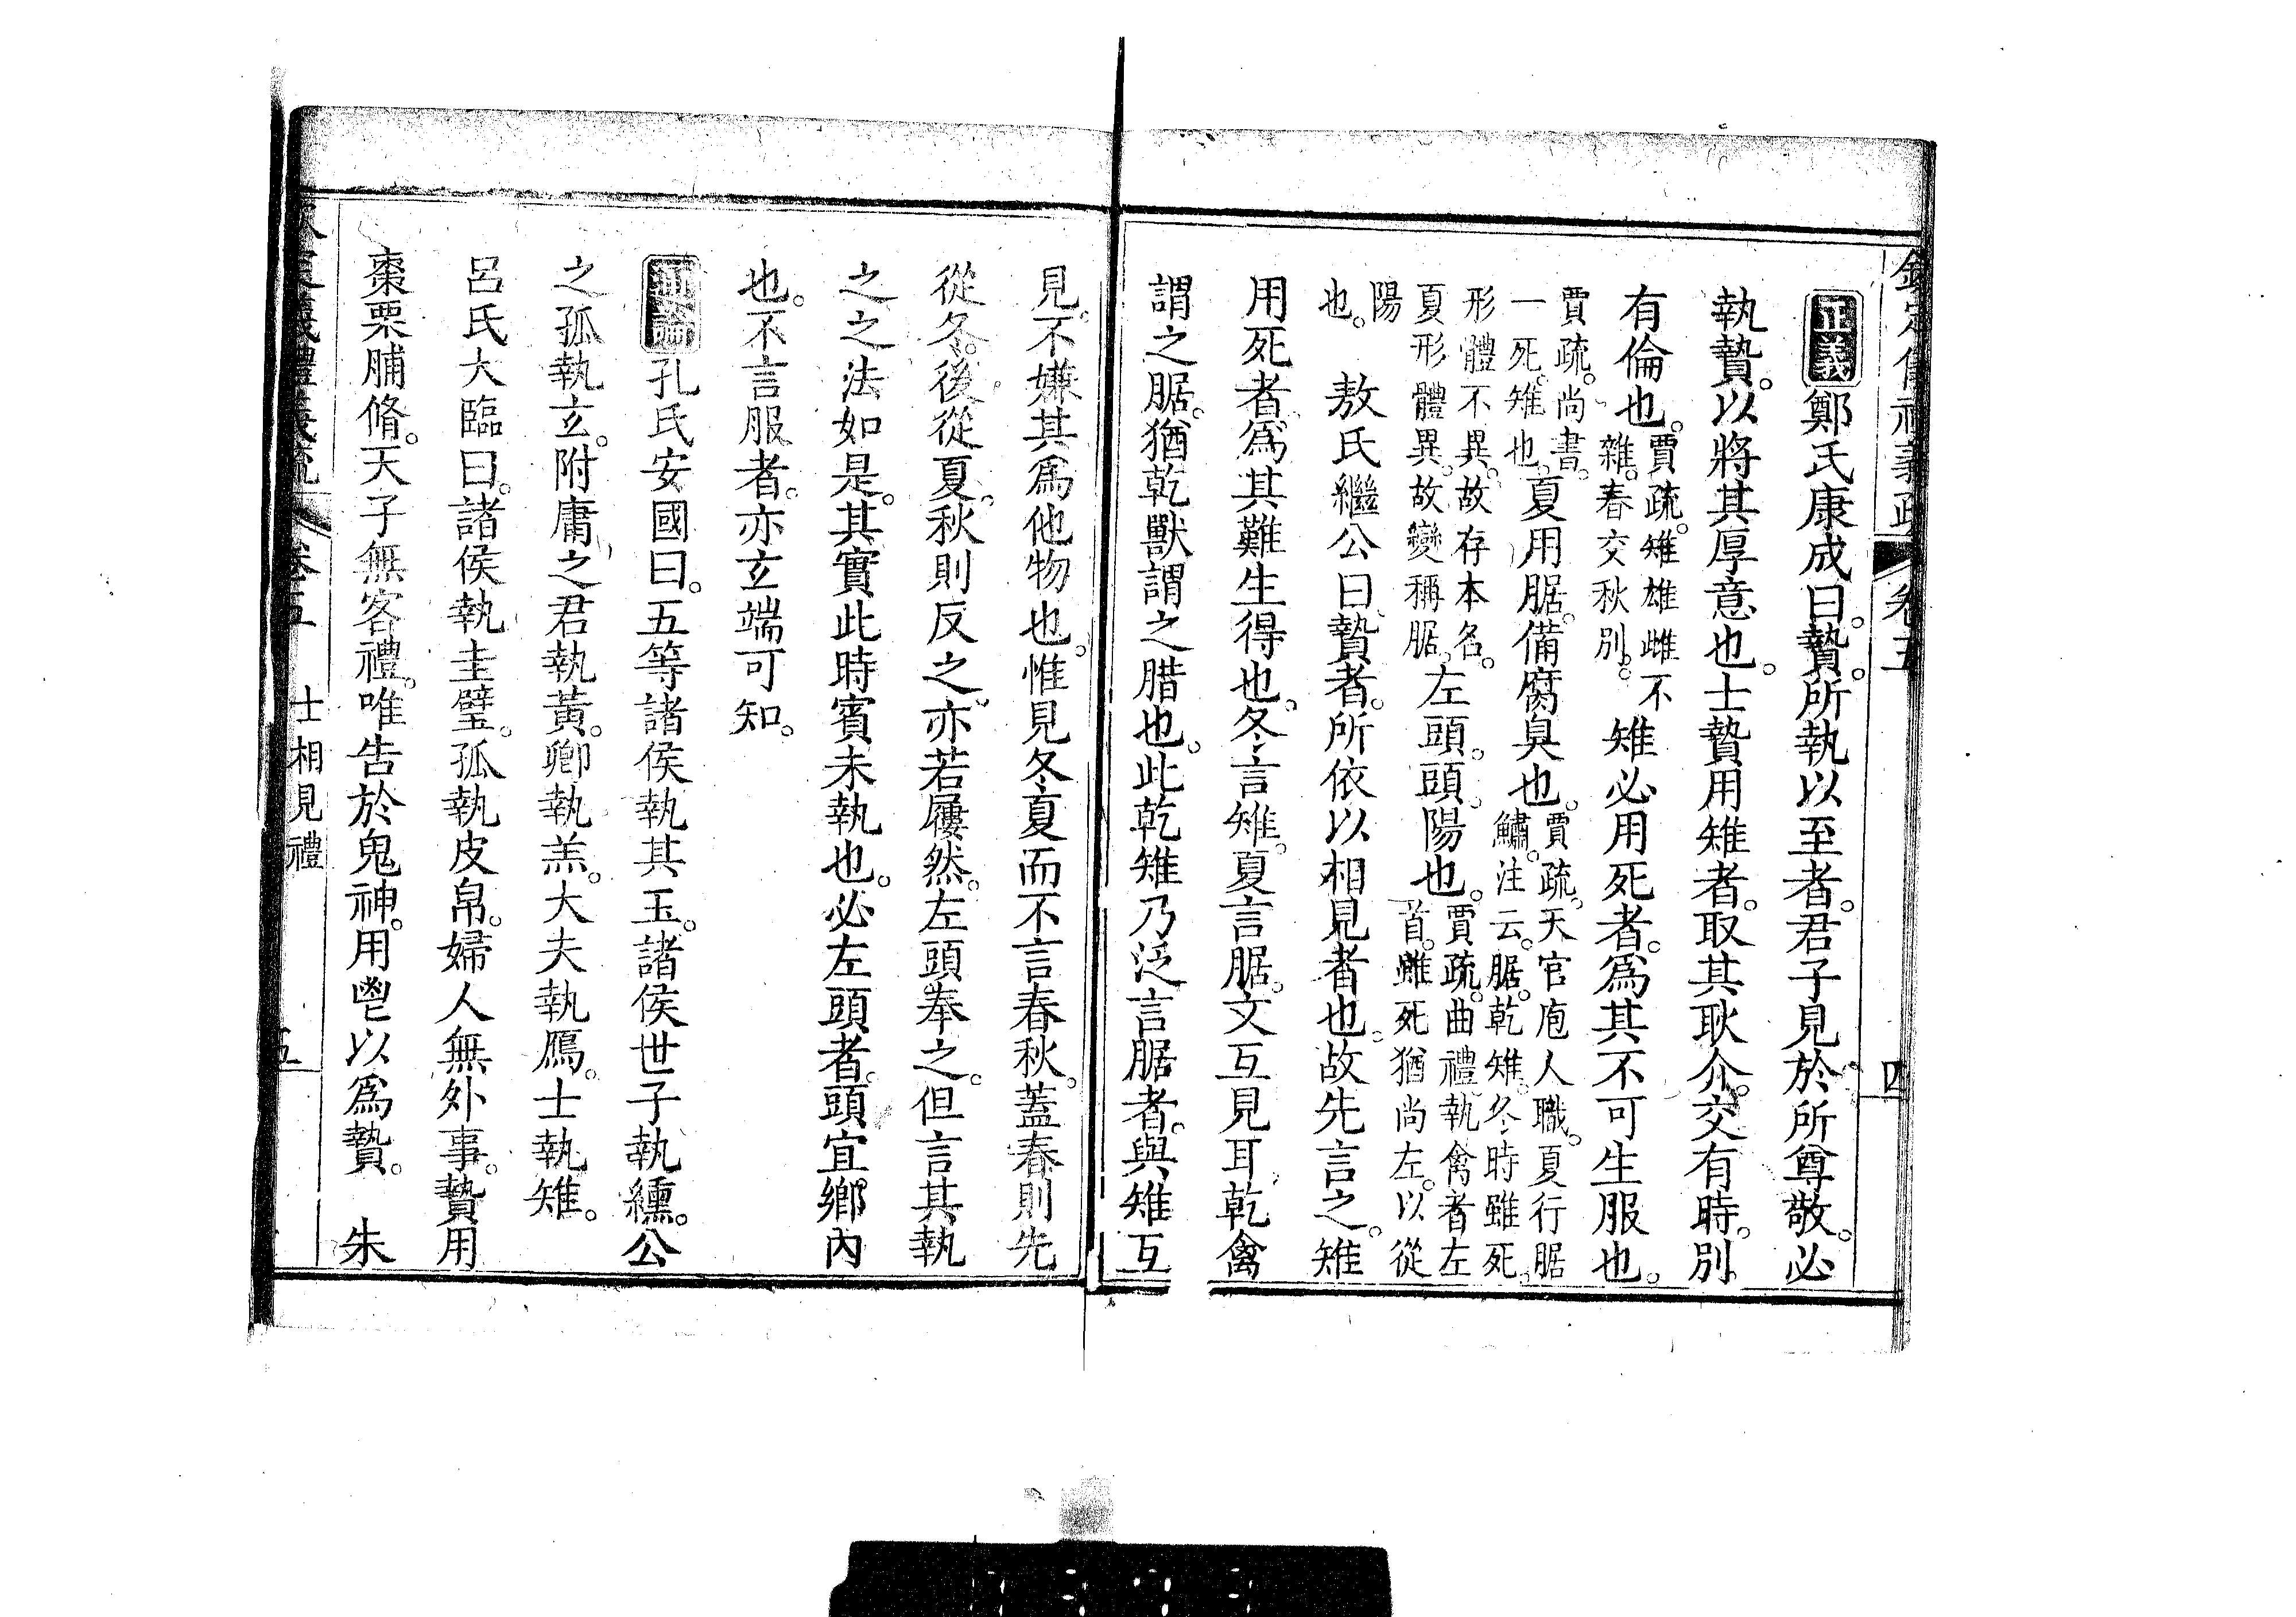 欽定儀禮義疏 卷五 四
正義 鄭氏康成曰。贄。所執以至者。君子見於所尊敬。必
執贄。以將其厚意也。士贄用雉者。取其耿介。交有時。別
有倫也。賈疏。雉雄雌不雜。春交秋別。雉必用死者。爲其不可生服也。
賈疏。尚書。一死。雉也。夏用腒。備腐臭也。賈疏。天官庖人職。夏行腒鱐。注云。腒。乾雉。冬時雖死。
形體不異。故存本名。夏形體異。故變稱腒。左頭。頭。陽也。賈疏。曲禮。執禽者左首。雖死猶尚左。以從
陽也。 敖氏繼公曰。贄者。所依以相見者也。故先言之。雉
用死者。爲其難生得也。冬言雉。夏言腒。文互見耳。乾禽
謂之腒。猶乾獸謂之腊也。此乾雉乃泛言腒者。與雉互
見。不嫌其爲他物也。惟見冬夏而不言春秋。蓋春則先
從冬。後從夏。秋則反之。亦若屨然。左頭奉之。但言其執
之之法如是。其實此時賓未執也。必左頭者。頭宜鄉內
也。不言服者。亦玄端可知。
通論 孔氏安國曰。五等諸侯執其玉。諸侯世子執纁。公
之孤執玄。附庸之君執黃。卿執羔。大夫執鴈。士執雉。
呂氏大臨曰。諸侯執圭璧。孤執皮帛。婦人無外事。贄用
棗栗脯脩。天子無客禮。唯告於鬼神。用鬯以爲贄。 朱
欽定儀禮義疏 卷五 士相見禮 五